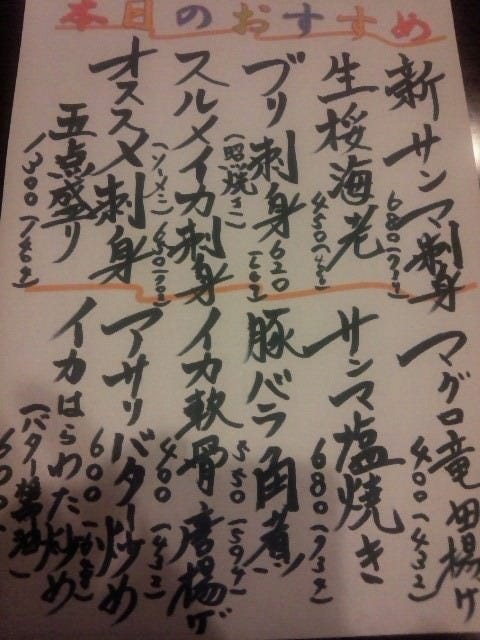 本日のおすすめ
新サンマ刺身
680(734)
生桜海老
450(486)
ブリ刺身 620
(照焼き)
スルメイカ刺身
(ソーメン) 650(702)
オススメ刺身
五点盛り
1300(1404)
マグロ竜田揚げ
400(432)
サンマ塩焼き
680(734)
豚バラ角煮
550(594)
イカ軟骨唐揚げ
400(432)
アサリバター炒め
600
イカはらわた炒め
(バター醤油)
600